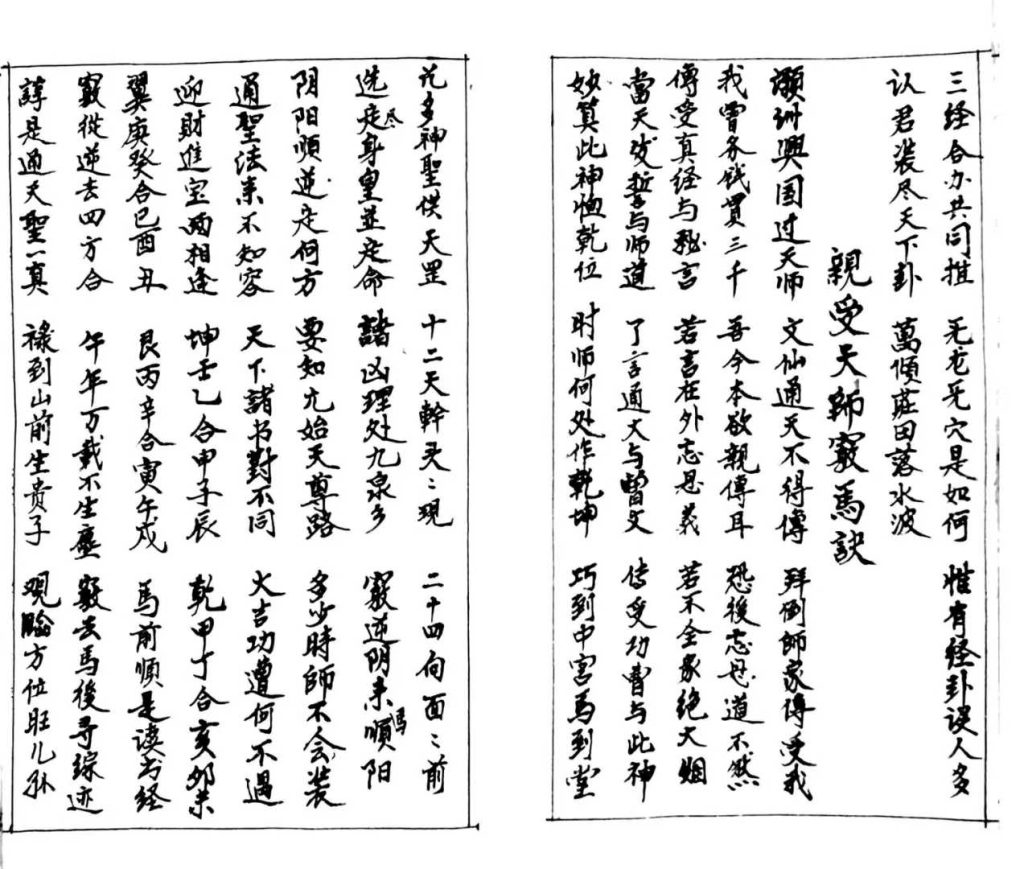 三经合办共同推 无龙无穴是如何 惟有经卦误人多
认君装尽天下卦 萬傾莊田落水波
親受天師竅馬訣
灝州興国过天师 文仙通天不得傳 拜倒師家傳受我
我曾务钱買三千 吾今本欲親傳耳 恐後忘恩道不然
傳受真经与 言 若言在外忘恩義 若不全家绝大烟
當天发誓与师道 了言通大与曹文 传受功曹与此神
妙算此神 乾位 时师何处作乾坤 巧到中宫馬到堂
花多神聖供天罡 十二天幹头〻現 二十四向面〻前
选走尽身皇並走命 諸凶理处九泉乡 竅逆阴来順馬阳
阴阳順逆走何方 要知九始天尊路 多少時師不会装
通聖法来不知容 天下諸书對不同 大吉功遭何不遇
迎財進宝两相逢 坤壬乙合甲子辰 乾甲丁合亥卯未
巽庚癸合已酉丑 艮丙辛合寅午戍 馬前順是读书经
竅從逆去四方合 午年万載不生塵 竅去馬後寻綜迹
諄是通天聖一真 祿到山前生贵子 观騐方位旺儿孙